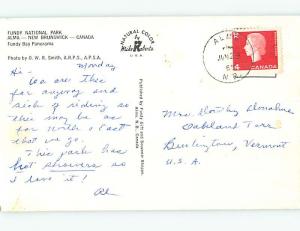 FUNDY NATIONAL PARK
ALMA — NEW BRUNSWICK — CANADA
Fundy Bay Panorama
Photo by G. W. E. Smith, A.R.P.S., A.P.S.A.
NATURAL COLOR
U.S.A.
Monday
Hi -
are this
far anyway and
sick of riding so
this may be as
far North & East
that we go.
This park has
hot showers so
I love it!
Al
Published by Fundy Gift and Souvenir Shoppe,
Alma, N. B., Canada
ALMA
N.B.
CANADA
Mrs Dorothy Donahue
Oakland Terr
Burlington, Vermont
U.S.A.